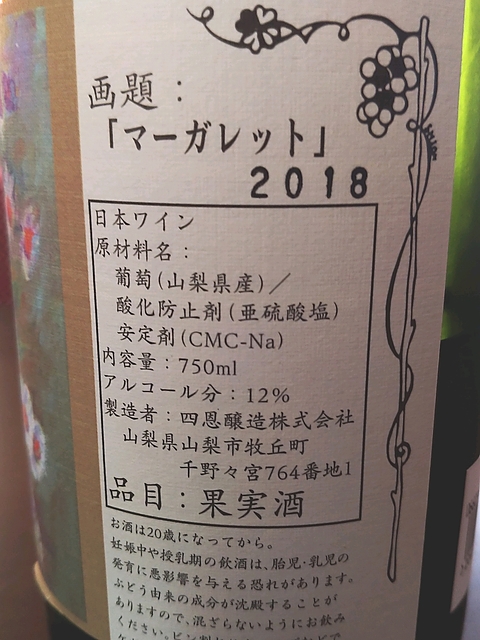 画題：
「マーガレット」
2018
日本ワイン
原材料名：
葡萄(山梨県産)／
酸化防止剤(亜硫酸塩)
安定剤(CMC-Na)
内容量：750ml
アルコール分：12%
製造者：四恩醸造株式会社
山梨県山梨市牧丘町
千野々宮764番地1
品目：果実酒
お酒は20歳になってから。
妊娠中や授乳期の飲酒は、胎児・乳児の
発育に悪影響を与える恐れがあります。
ぶどう由来の成分が沈殿することが
ありますので、混ざらないようにお飲み
ください。